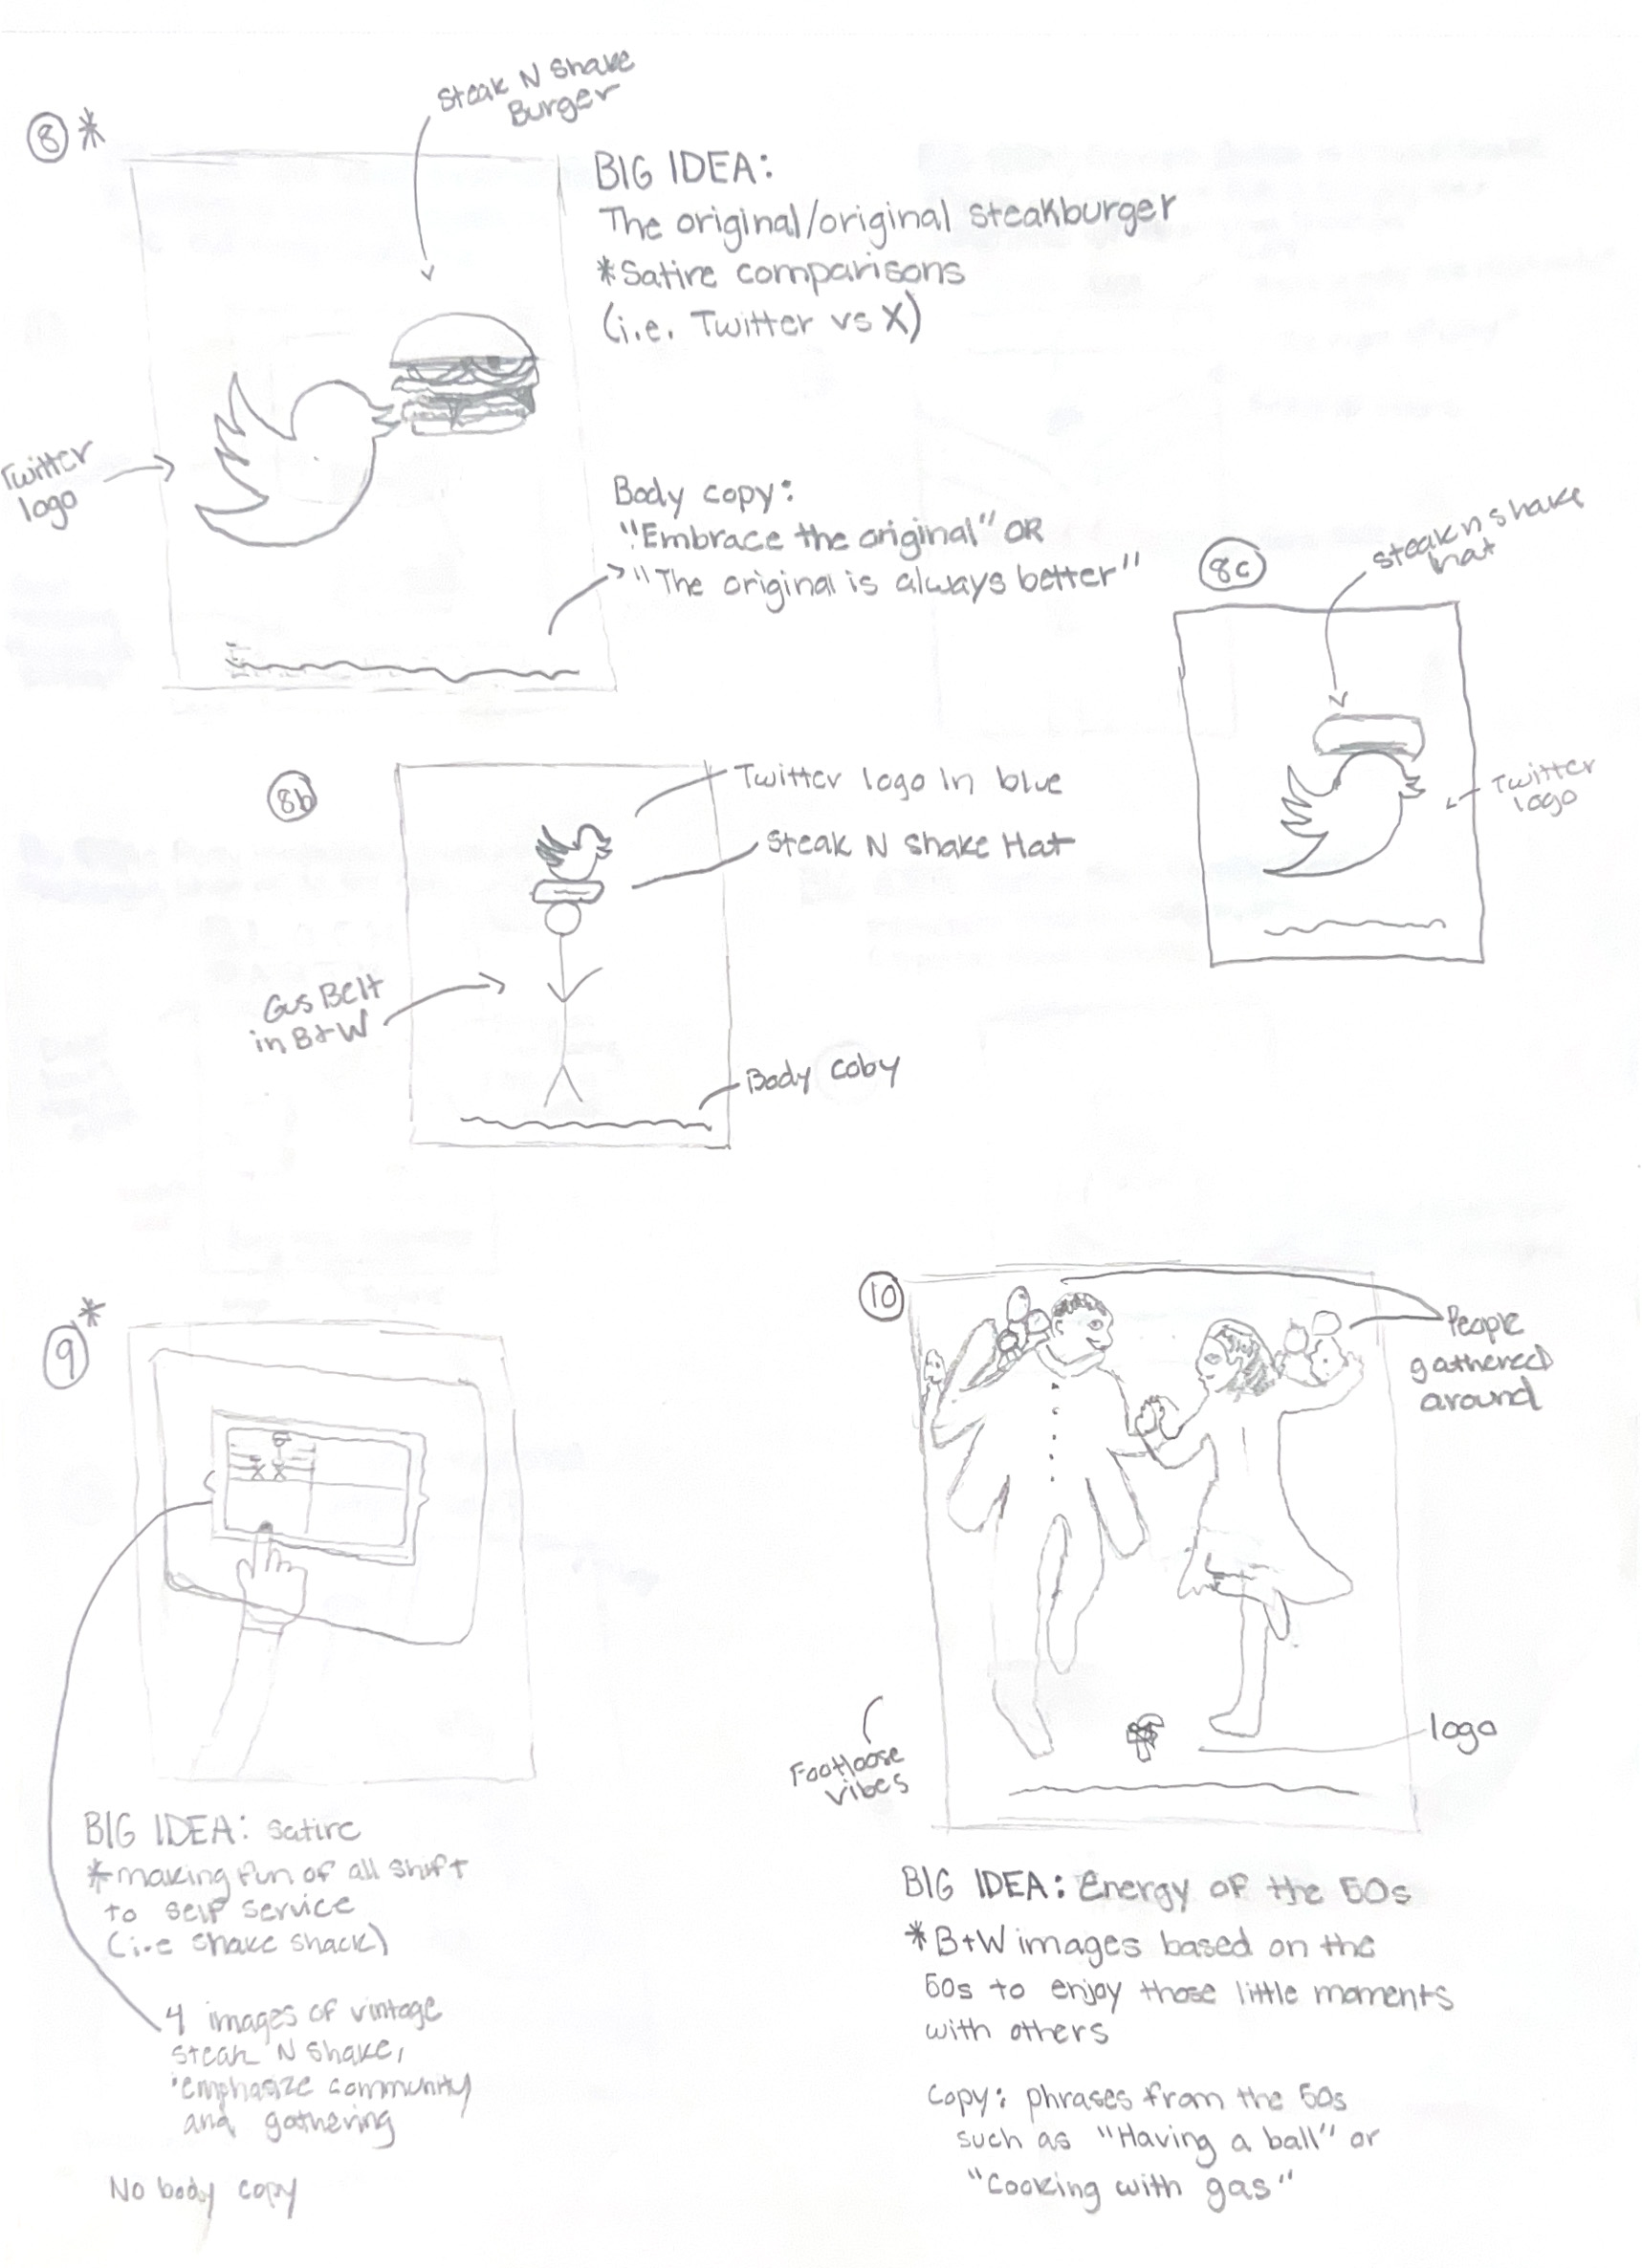 8 *
Steak N Shake
Burger
BIG IDEA:
The original/original steakburger
*Satire comparisons
(i.e. Twitter vs X)
Twitter
logo
Body copy:
"Embrace the original" OR
"The original is always better"
8c
steak n shake
hat
Twitter
logo
8b
Twitter logo in blue
Steak N Shake Hat
Gus Belt
in B+W
Body coby
9 *
BIG IDEA: satire
*making fun of all shift
to self service
(i.e shake shack)
4 images of vintage
steak N shake,
emphasize community
and gathering
No body copy
10
People
gathered
around
logo
Footloose
vibes
BIG IDEA: Energy of the 50s
*B+W images based on the
50s to enjoy those little moments
with others
Copy: phrases from the 50s
such as "Having a ball" or
"Cooking with gas"